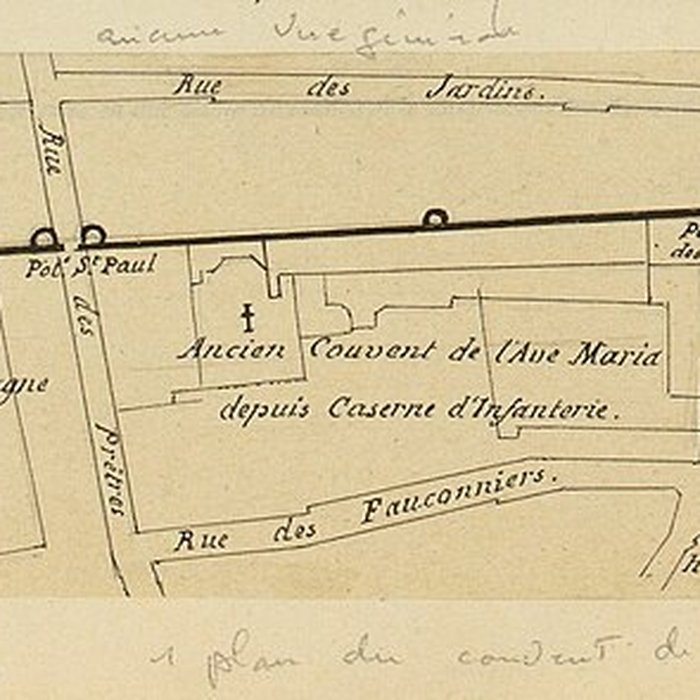 aucune Vue générale
Rue des Jardins.
Rue des Prêtres
Pot. St. Paul
Ancien Couvent de l'Ave Maria
depuis Caserne d'Infanterie.
Rue des Fauconniers.
1 plan du couvent de